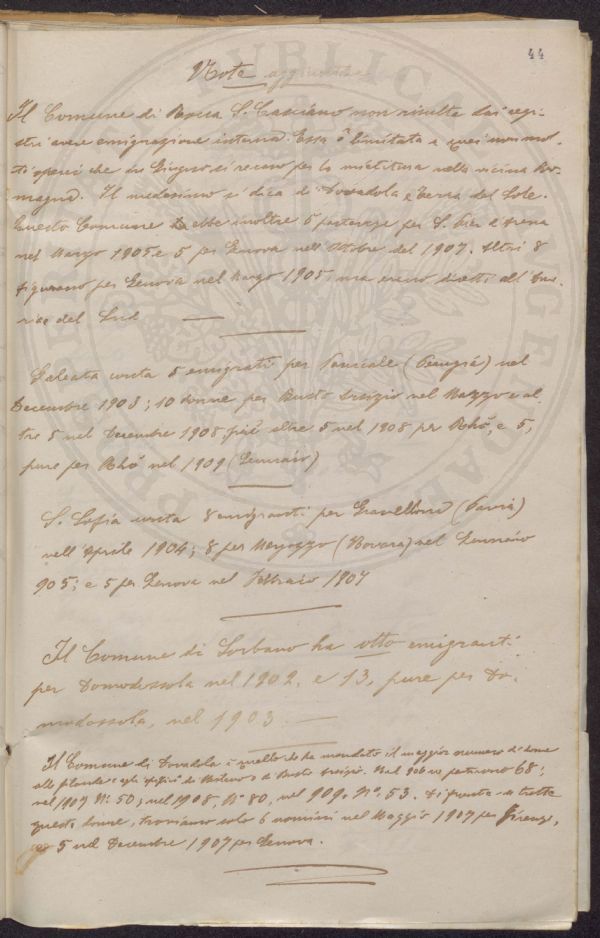 44
Note aggiuntive
Il Comune di Rocca S. Casciano non risulta dai regi-
stri avere emigrazione interna. Essa è limitata a quei
operai che in Giugno si recano per la mietitura nella vicina Ro-
magna. Il medesimo si dica di Dovadola, e Terra del Sole.
Questo Comune ebbe inoltre 6 partenze per S. Pier d'Arena
nel Marzo 1905 e 5 per Genova nell'Ottobre del 1907. Altri 8
figurano per Genova nel Marzo 1905, ma erano diretti all'Ame-
rica del Sud
Galeata conta 5 emigrati per Panicale (Perugia) nel
Decembre 1903; 10 donne per Busto Arsizio nel Maggio e al
tre 5 nel Decembre 1908, più altre 5 nel 1908 per Rhò, e 5,
pure per Rhò nel 1909 (Gennaio)
S. Sofia conta 8 emigranti per Gravellona (Pavia)
nell'Aprile 1904; 8 per (Novara) nel Gennaio
905; e 5 per Genova nel Febbraio 1907
Il Comune di Sorbano ha otto emigranti
per Domodossola nel 1902, e 13, pure per Do-
modossola, nel 1903.
Il Comune di Dovadola è quello che ha mandato il maggior numero di donne
alle filande e agli opifici di e di Busto Arsizio. Nel 906 ne partirono 68;
nel 1907 N.° 50; nel 1908, N.° 80, nel 909, N.° 53. Di fronte a tutte
queste donne, troviamo solo 6 uomini nel Maggio 1907 per Firenze,
5 nel Decembre 1907 per Genova.
PUBLICA